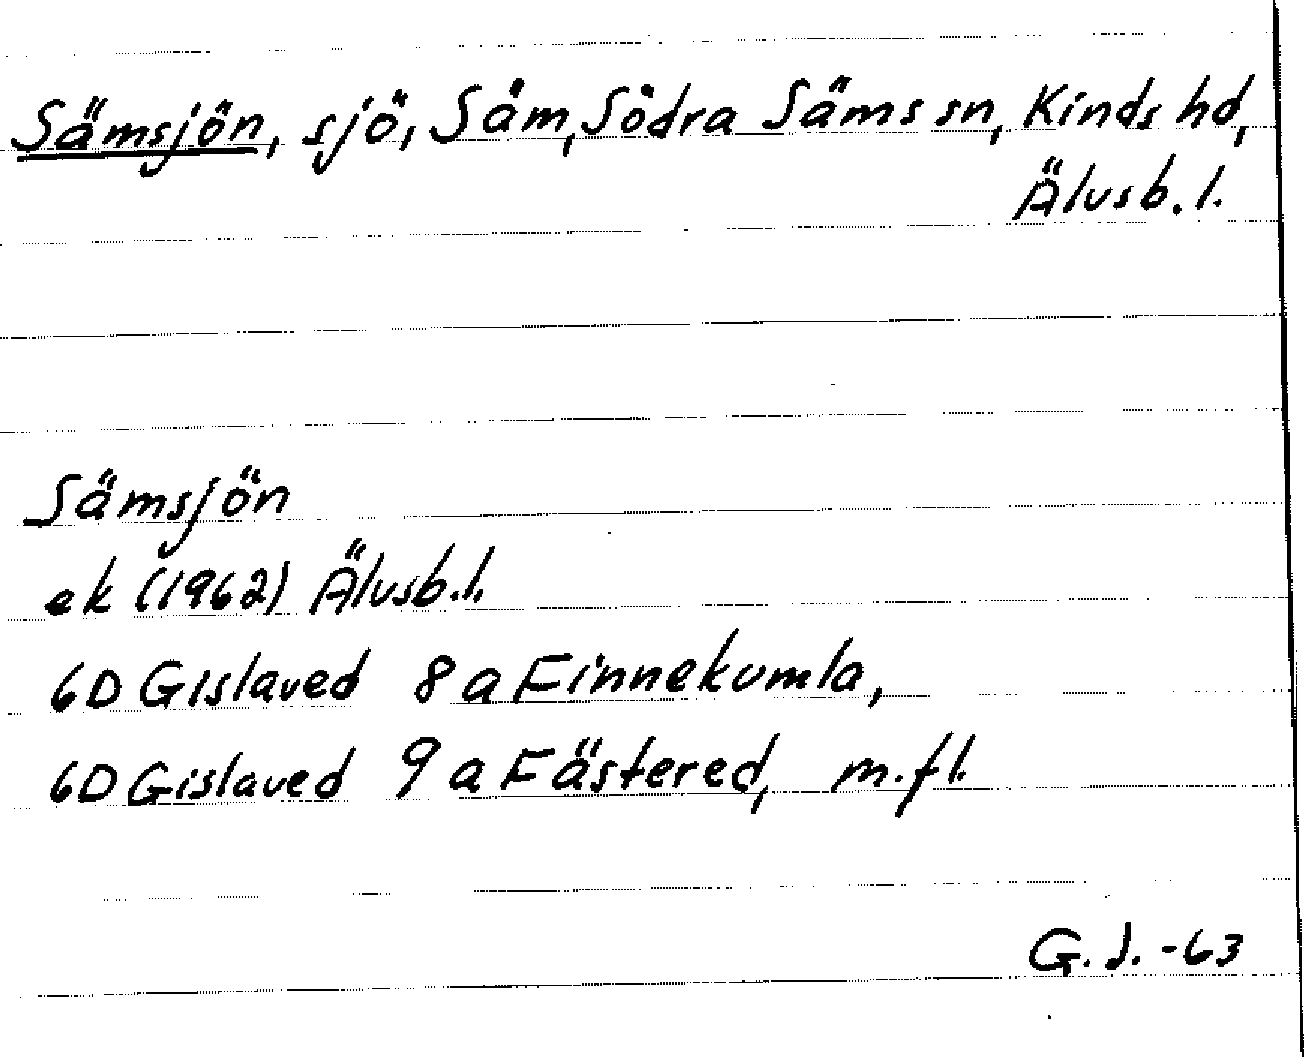 Sämsjön, sjö, Säm, Södra Säms sn, Kinds hd,
Älvsb. l.
Sämsjön
ek (1962) Älvsb.l.
6D Gislaved 8a Finnekumla,
6D Gislaved 9a Fästered, m.fl.
G.J.-63